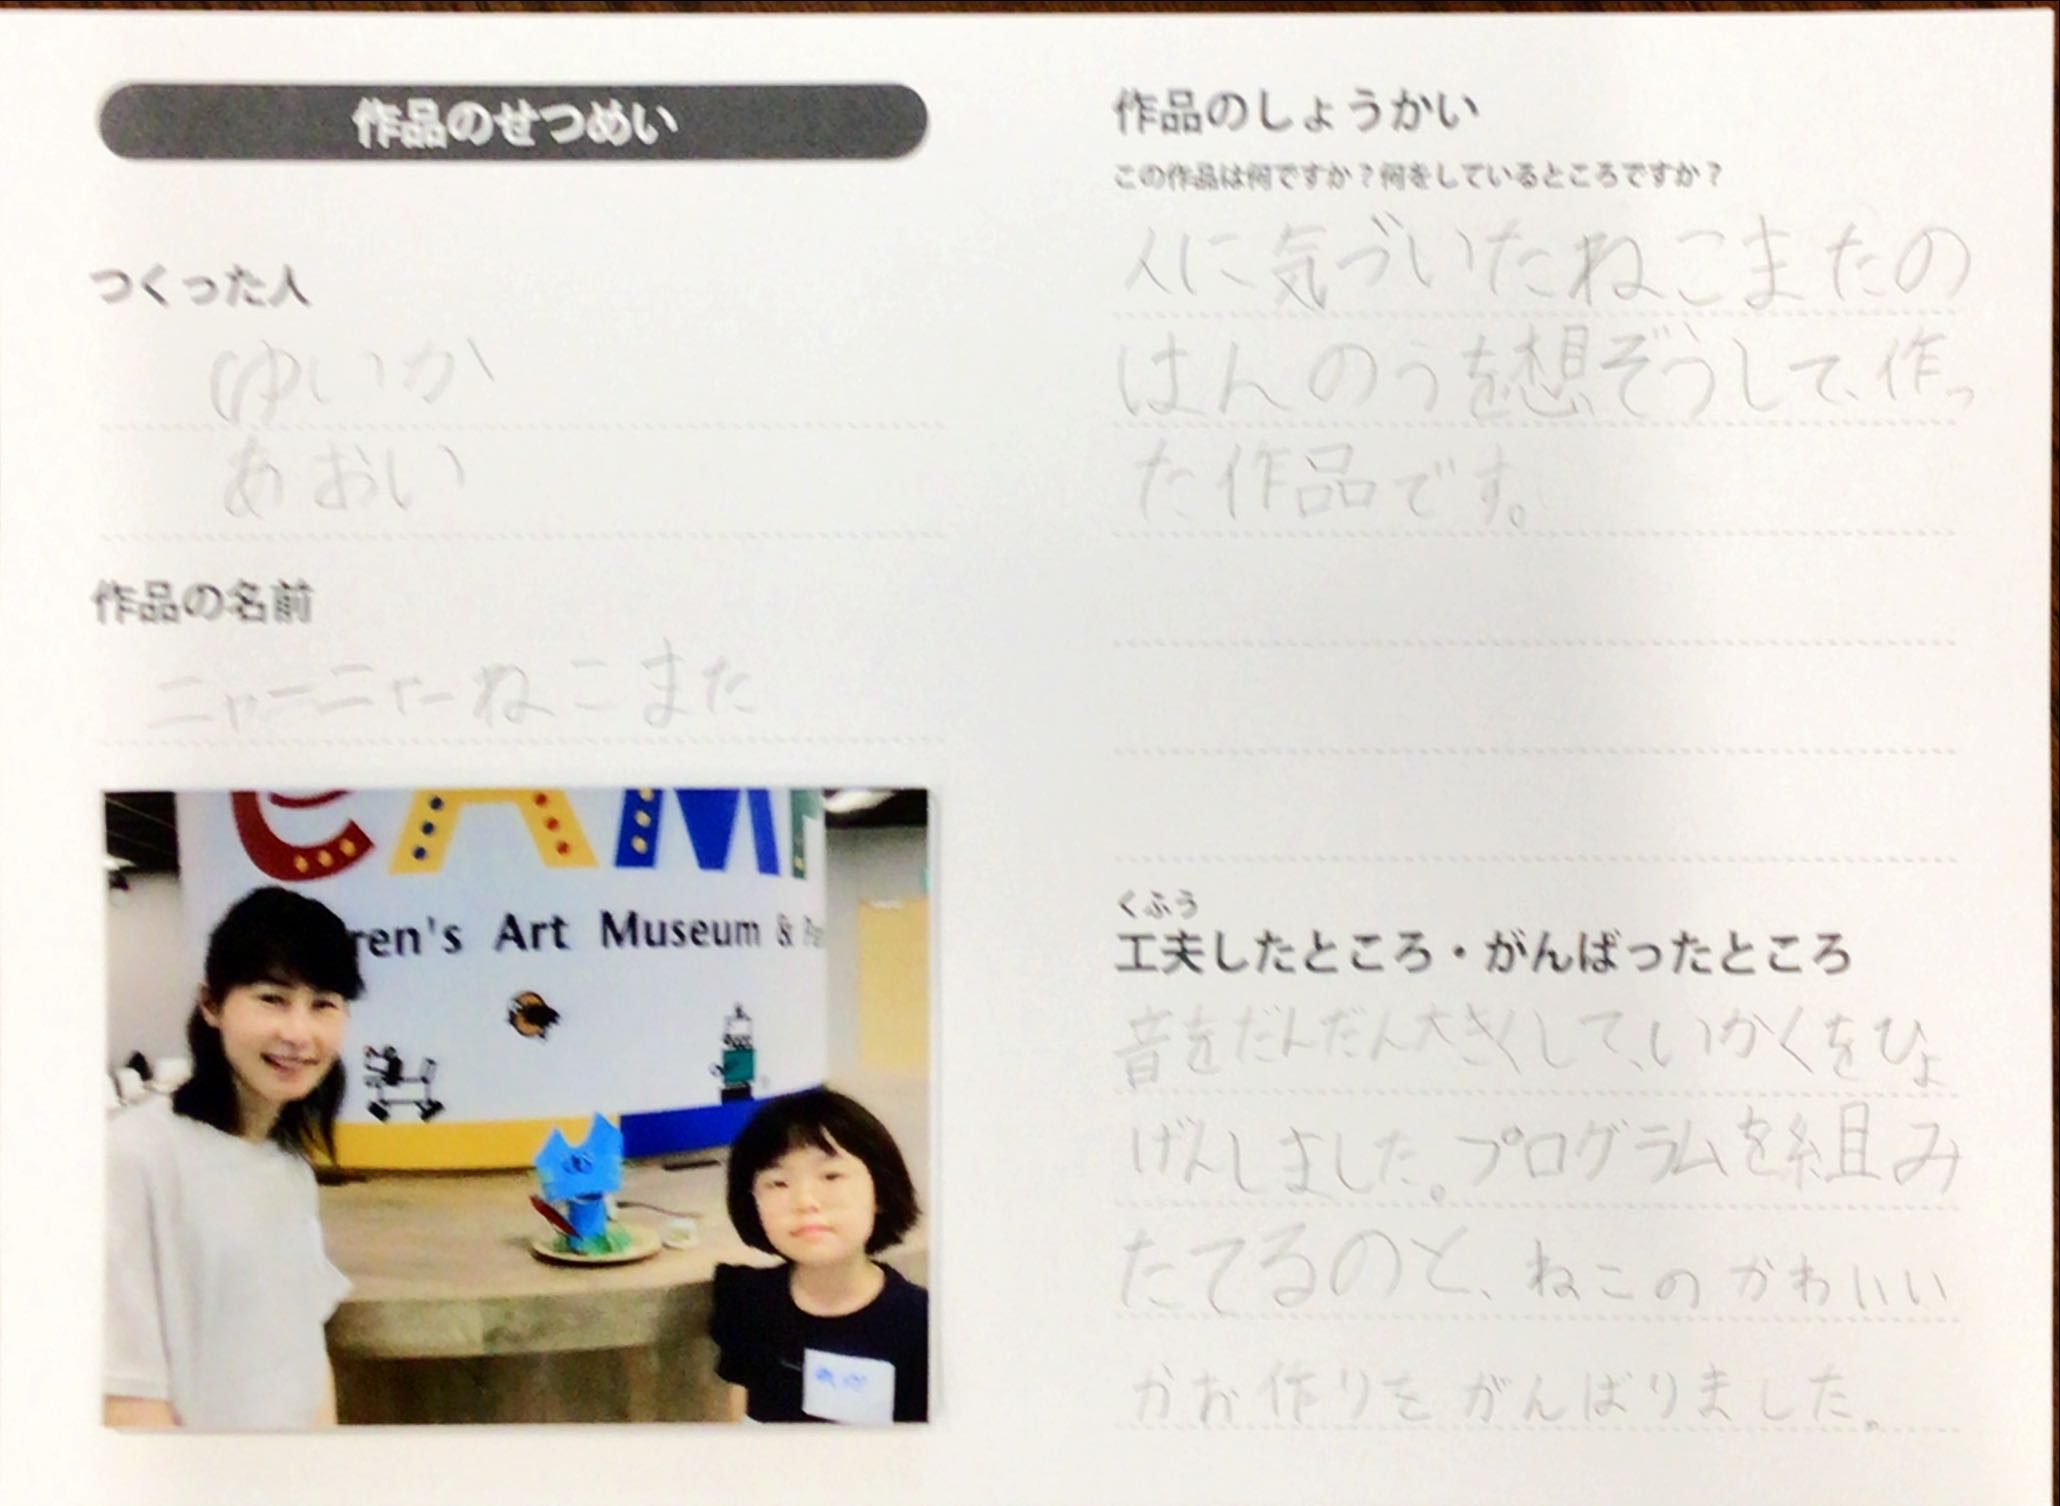 作品のせつめい
つくった人
ゆいか
あおい
作品の名前
ニャーニャーねこまた
CAMP
ren's Art Museum & Pa
作品のしょうかい
この作品は何ですか？何をしているところですか？
人に気づいたねこまたの
はんのうを想ぞうして、作っ
た作品です。
くふう
工夫したところ・がんばったところ
音をだんだん大きくして、いかくをひょ
げんしました。プログラムを組み
たてるのと、ねこのかわいい
かお作りをがんばりました。